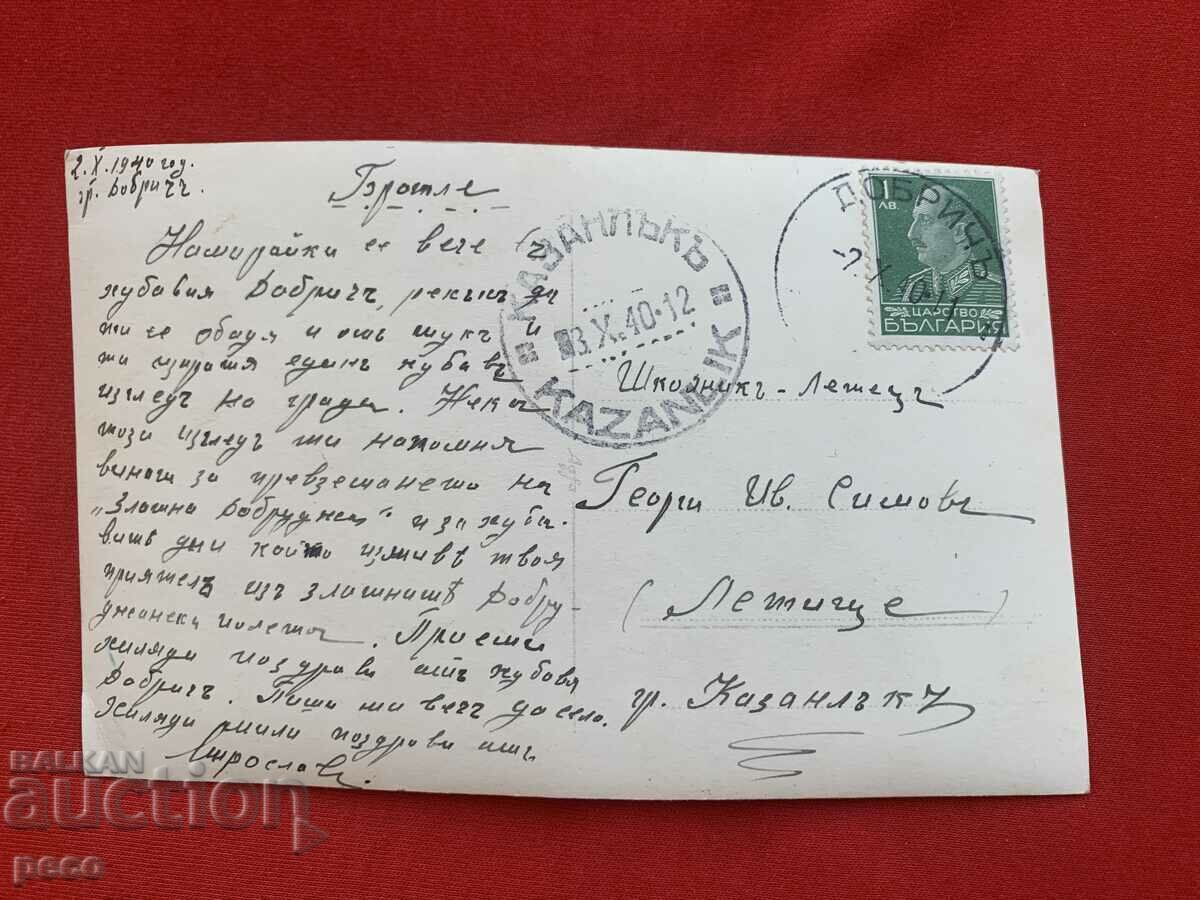 2.X.1940 год.
гр. Добричъ.
Намирайки се вече въ
хубавия Добричъ, рекъхъ да
ти се обадя и отъ тукъ и
ти изпратя единъ хубавъ
изгледъ на града. Нека
този изгледъ ти напомня
винаги за превземането на
„Златна Добруджа" и за хуба-
витѣ дни който изживѣ твоя
приятелъ изъ златнитѣ Добру-
джански полета. Приеми
хиляди поздрави отъ хубавия
Добричъ. Пиши ми вечъ до село.
Хиляди мили поздрави отъ
Мирославъ.
КАЗАНЛЪКЪ
3.X.40-12
KAZANLIK
ДОБРИЧЪ
1
ЛВ.
ЦАРСТВО
БЪЛГАРИЯ
Школникъ - Летецъ
Георги Ив. Симовъ
(Летище)
гр. Казанлъкъ
BALKAN
auction
peco